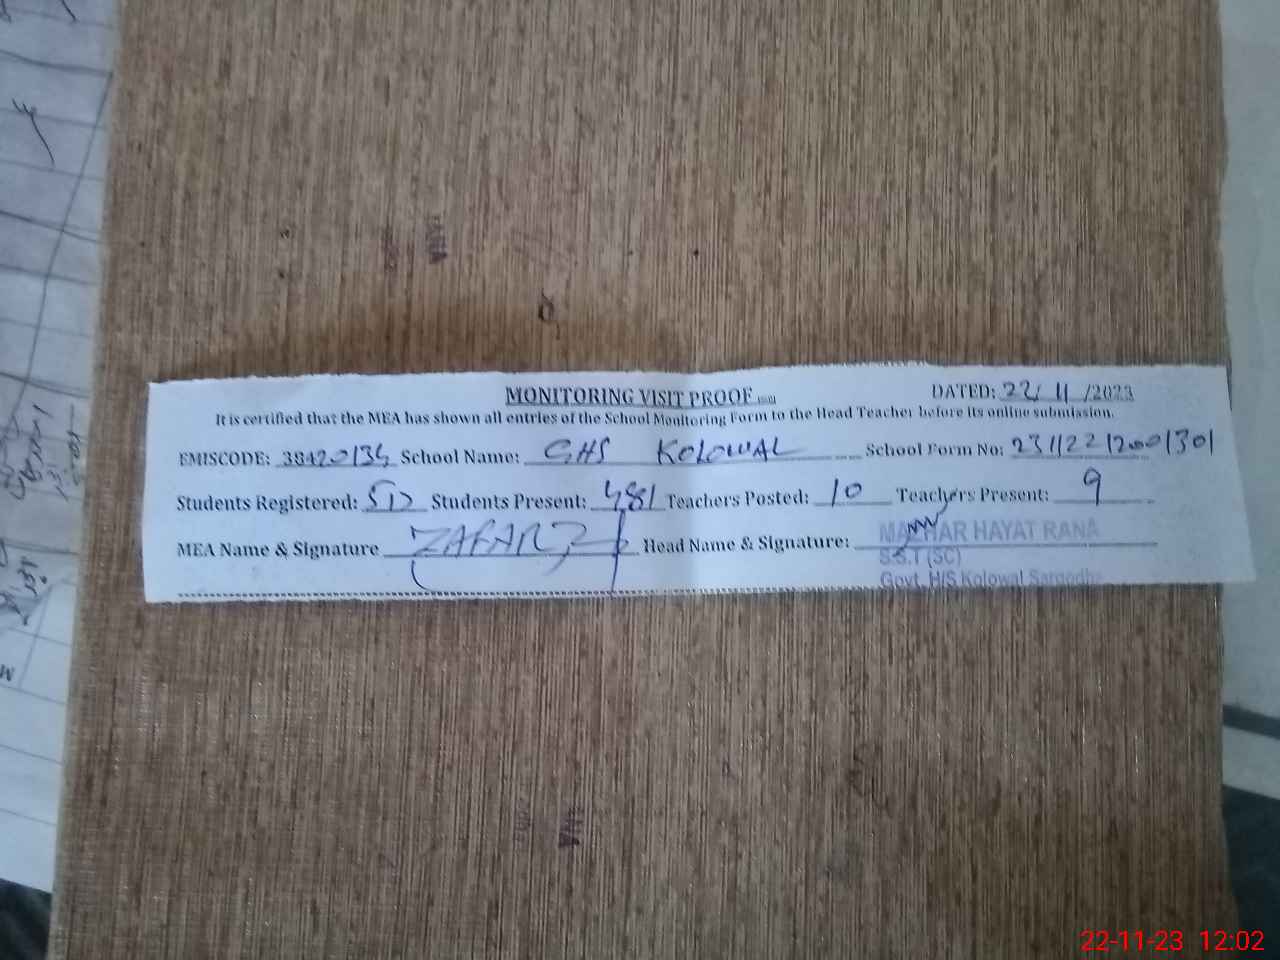 MONITORING VISIT PROOF DATED: 22/11/2023
It is certified that the MEA has shown all entries of the School Monitoring Form to the Head Teacher before its online submission.
EMISCODE: 38420134 School Name: GHS KOLOWAL School Form No:
Students Registered: 512 Students Present: 481 Teachers Posted: 10 Teachers Present: 9
MEA Name & Signature ZAFAR Head Name & Signature: MAZHAR HAYAT RANA
S.S.T (SC)
Govt. H/S Kolowal Sargodha
22-11-23 12:02